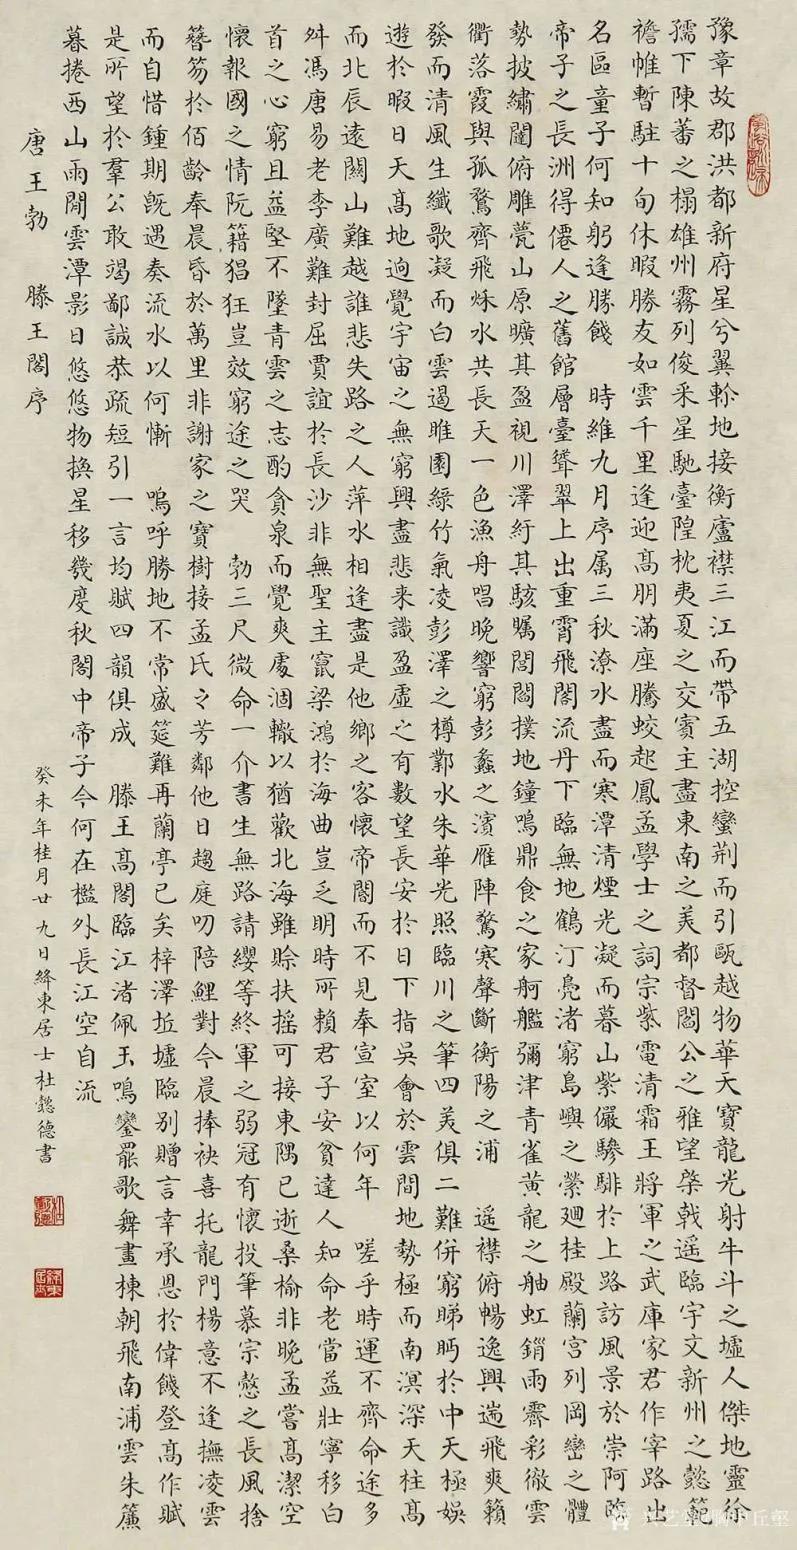 豫章故郡洪都新府星兮翼軫地接衡廬襟三江而帶五湖控蠻荆而引甌越物華天寶龍光射牛斗之墟人傑地靈徐
孺下陳蕃之榻雄州霧列俊采星馳臺隍枕夷夏之交賓主盡東南之美都督閻公之雅望棨戟遥臨宇文新州之懿範
襜帷暫駐十旬休暇勝友如雲千里逢迎髙朋滿座騰蛟起鳳孟學士之詞宗紫電清霜王將軍之武庫家君作宰路出
名區童子何知躬逢勝餞 時維九月序属三秋潦水盡而寒潭清煙光凝而暮山紫儼驂騑於上路訪風景於崇阿臨
帝子之長洲得僊人之舊館層臺聳翠上出重霄飛閣流丹下臨無地鶴汀鳧渚窮島嶼之縈廻桂殿蘭宫列岡巒之體
勢披繡闥俯雕甍山原曠其盈視川澤紆其駭矚閭閻撲地鐘鳴鼎食之家舸艦彌津青雀黄龍之舳虹銷雨霽彩徹雲
衢落霞與孤鶩齊飛秌水共長天一色漁舟唱晚響窮彭蠡之濱雁陣驚寒聲斷衡陽之浦 遥襟俯暢逸興遄飛爽籟
發而清風生纖歌凝而白雲遏睢園綠竹氣凌彭澤之樽鄴水朱華光照臨川之筆四美俱二難併窮睇眄於中天極娱
遊於暇日天髙地迥覺宇宙之無窮興盡悲来識盈虛之有數望長安於日下指吳會於雲間地勢極而南溟深天柱髙
而北辰遠關山難越誰悲失路之人萍水相逢盡是他鄉之客懷帝閽而不見奉宣室以何年 嗟乎時運不齊命途多
舛馮唐易老李廣難封屈賈誼於長沙非無聖主竄梁鴻於海曲豈乏明時所賴君子安貧達人知命老當益壯寧移白
首之心窮且益堅不墜青雲之志酌貪泉而覺爽處涸轍以猶歡北海雖賒扶摇可接東隅已逝桑榆非晚孟嘗髙潔空
懷報國之情阮籍猖狂豈效窮途之哭 勃三尺微命一介書生無路請纓等終軍之弱冠有懷投筆慕宗慤之長風捨
簪笏於佰齡奉晨昏於萬里非謝家之寶樹接孟氏之芳鄰他日趨庭叨陪鯉對今晨捧袂喜托龍門楊意不逢撫凌雲
而自惜鍾期既遇奏流水以何慚 嗚呼勝地不常盛筵難再蘭亭已矣梓澤坵墟臨别贈言幸承恩於偉餞登髙作賦
是所望於羣公敢竭鄙誠恭疏短引一言均賦四韻俱成 滕王髙閣臨江渚佩玉鳴鑾罷歌舞畫棟朝飛南浦雲朱簾
暮捲西山雨閒雲潭影日悠悠物換星移幾度秋閣中帝子今何在檻外長江空自流
唐王勃 滕王閣序
癸未年桂月廿九日絳東居士杜懿德書